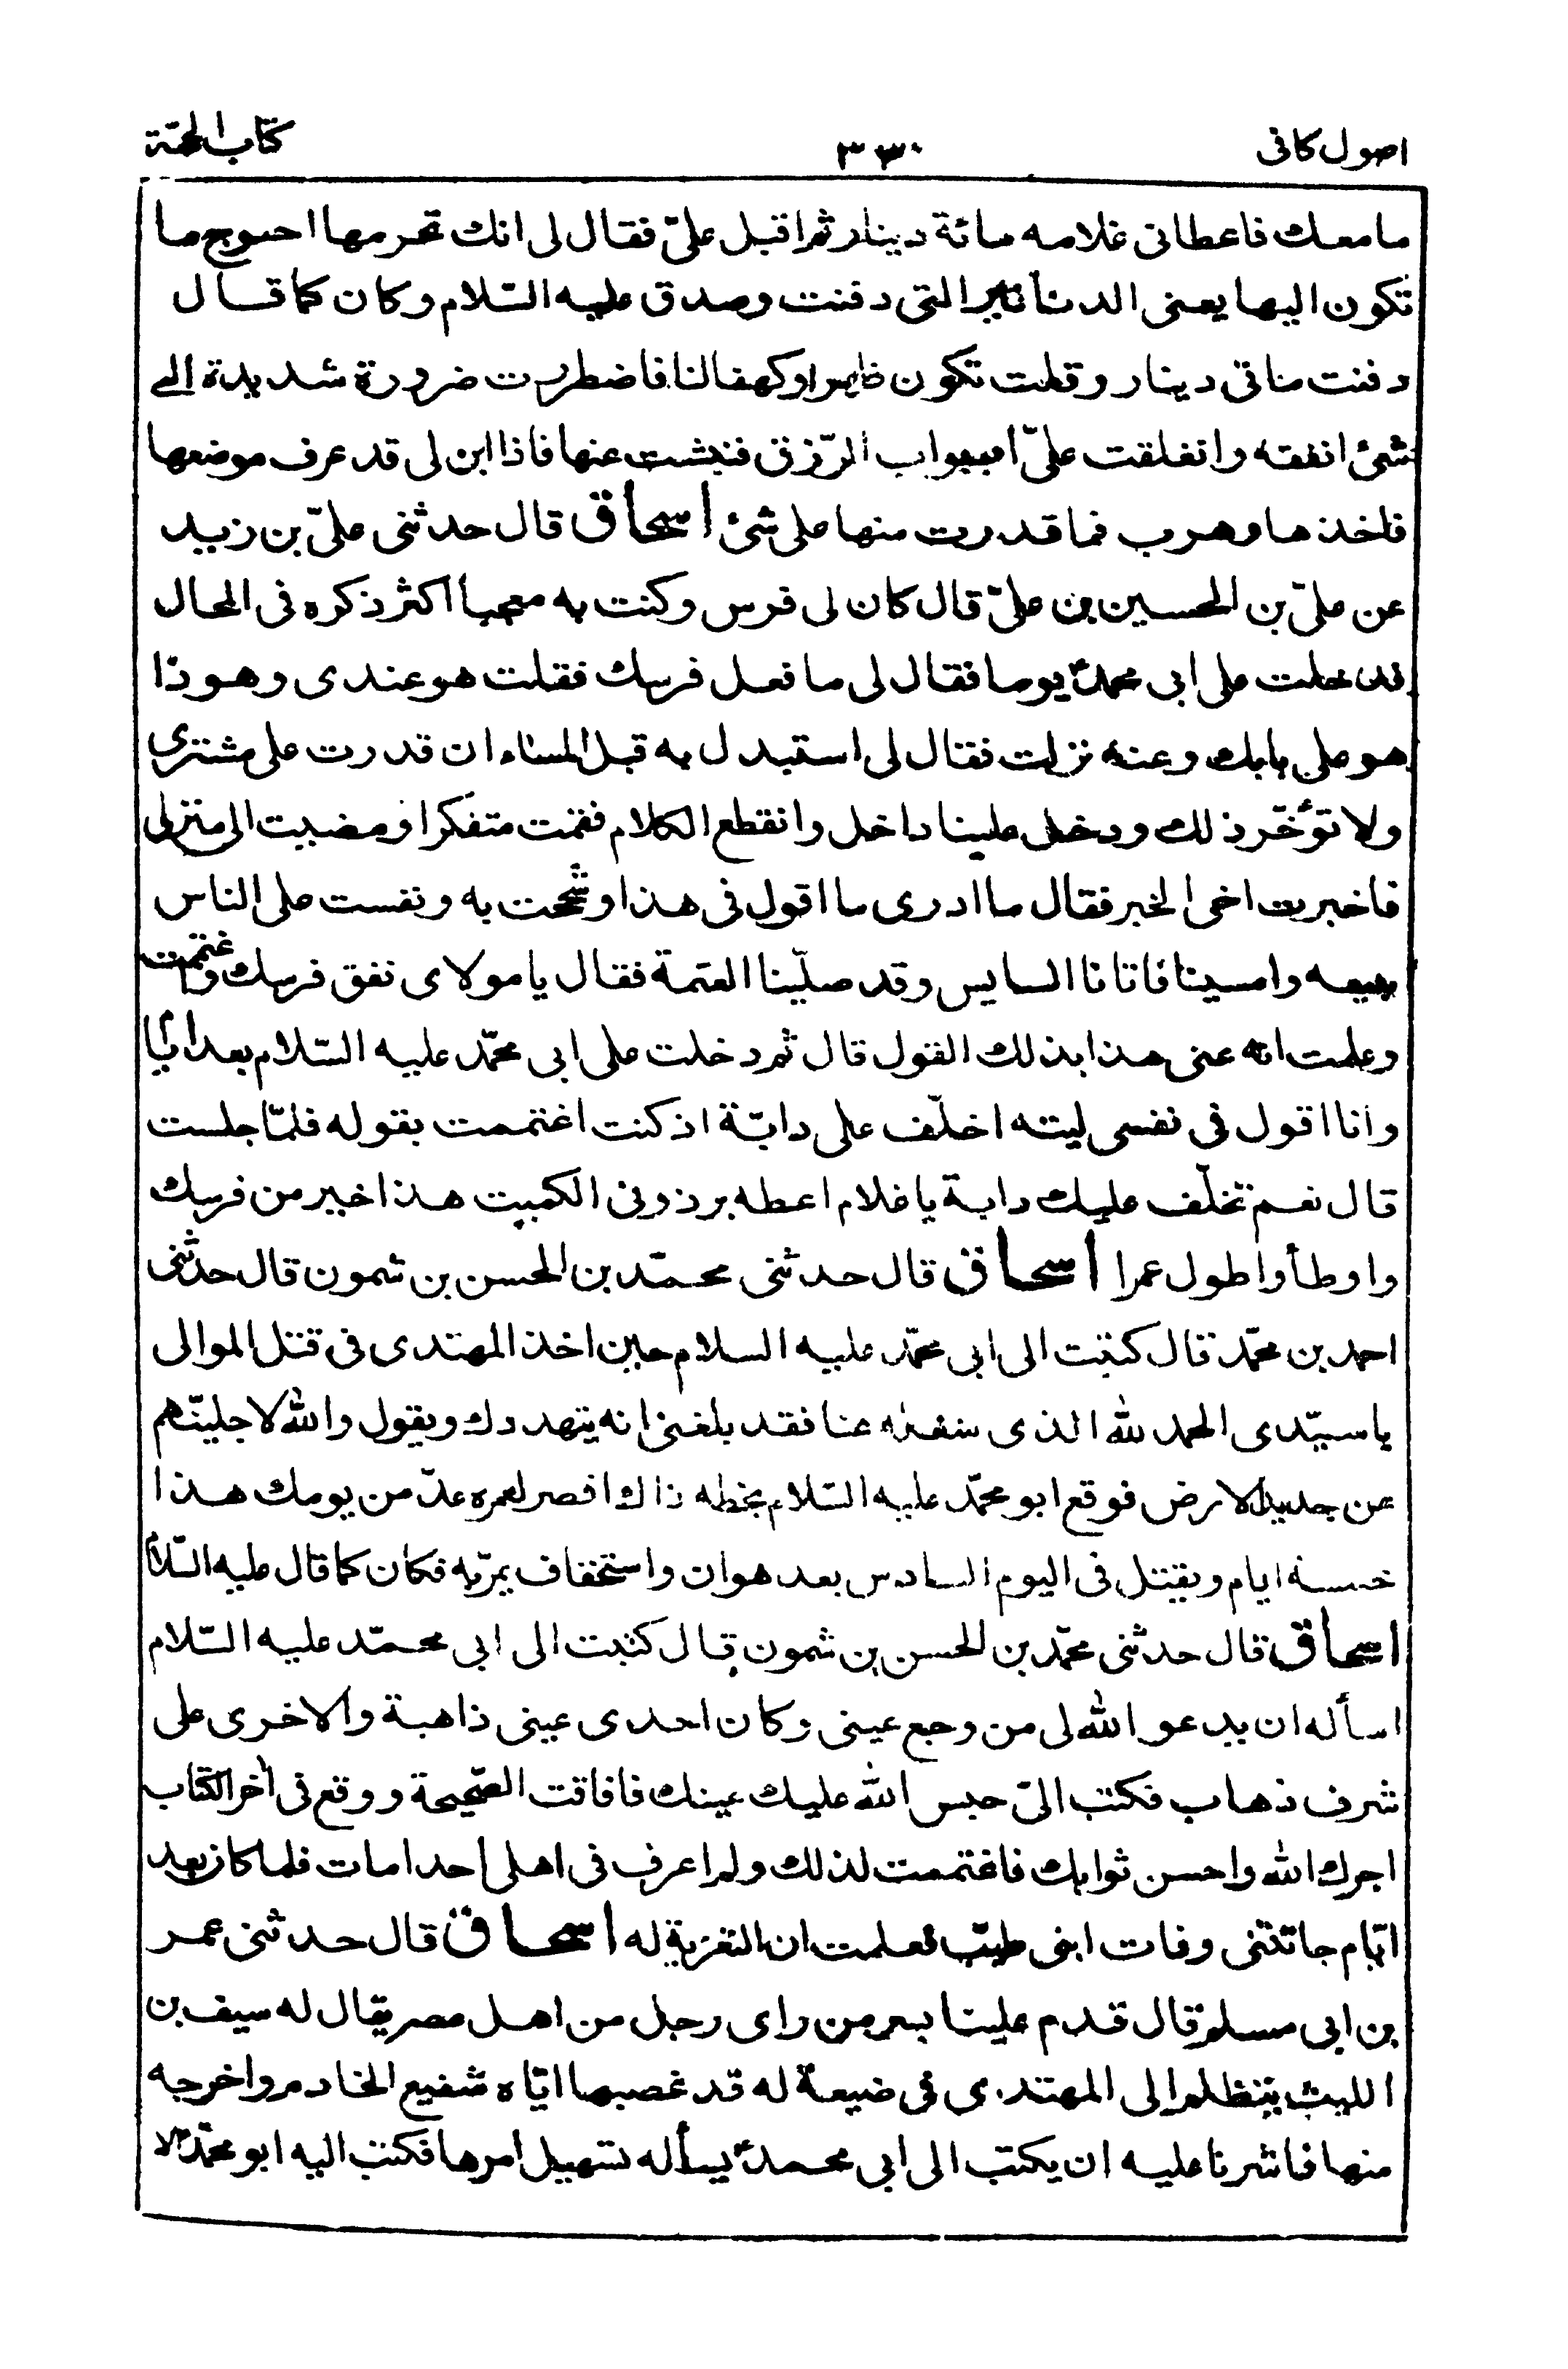 اصول كافى ٣٣٠ كتاب الحجّة
ما معك فاعطانى غلامه مائة دينار ثم اقبل علىّ فقال لى انك تحرمها احوج ما
تكون اليها يعنى الدنانير التى دفنت وصدق عليه السّلام وكان كما قال
دفنت مأتى دينار وقلت تكون ظهرا وكهفا لنا فاضطررت ضرورة شديدة الى
شئ انفقه وانغلقت علىّ ابواب الرّزق فنبشت عنها فاذا ابن لى قد عرف موضعها
فاخذها وهرب فما قدرت منها على شئ اسحاق قال حدثنى علىّ بن زيد
عن علىّ بن الحسين بن علىّ قال كان لى فرس وكنت به معجبا اكثر ذكره فى المحال
فدخلت على ابى محمدؑ يوما فقال لى ما فعل فرسك فقلت هو عندى وهوذا
هو على بابك وعنه نزلت فقال لى استبدل به قبل المساء ان قدرت على مشترى
ولا تؤخّر ذلك ودخل علينا داخل وانقطع الكلام فقمت متفكرا ومضيت الى منزلى
فاخبرت اخى الخبر فقال ما ادرى ما اقول فى هذا وشححت به ونفست على الناس
ببيعه وامسينا فاتانا السايس وقد صلّينا العتمة فقال يا مولاى نفق فرسك واغتممت
وعلمت انه عنى هذا بذلك القول قال ثم دخلت على ابى محمّد عليه السّلام بعد ايّام
وانا اقول فى نفسى ليته اخلّف على دابّة اذ كنت اغتممت بقوله فلمّا جلست
قال نعم نخلّف عليك دابة يا غلام اعطه برذونى الكميت هذا خير من فرسك
واوطأ واطول عمرا اسحاق قال حدثنى محمّد بن الحسن بن شمون قال حدثنى
احمد بن محمّد قال كتبت الى ابى محمّد عليه السلام حين اخذ المهتدى فى قتل الموالى
يا سيّدى الحمد لله الذى شغله عنا فقد بلغنى انه يتهددك ويقول والله لاجلينّهم
عن جديد الارض فوقع ابو محمّد عليه السّلام بخطه ذاك اقصر لعمره عدّ من يومك هذا
خمسة ايام ويقتل فى اليوم السادس بعد هوان واستخفاف يمرّبه فكان كما قال عليه السّلام
اسحاق قال حدثنى محمّد بن الحسن بن شمون قال كتبت الى ابى محمّد عليه السّلام
اسأله ان يدعو الله لى من وجع عينى وكان احدى عينى ذاهبة والاخرى على
شرف ذهاب فكتب الىّ حبس الله عليك عينك فافاقت الصّحيحة ووقع فى آخر الكتاب
اجرك الله واحسن ثوابك فاغتممت لذلك ولم اعرف فى اهلى احدا مات فلما كان بعد
ايّام جاءتنى وفات ابنى طيّب فعلمت ان التعزية له اسحاق قال حدثنى عمر
بن ابى مسلم قال قدم علينا بسر من راى رجل من اهل مصر يقال له سيف بن
الليث يتظلم الى المهتدى فى ضيعة له قد غصبها ايّاه شفيع الخادم واخرجه
منها فاشرنا عليه ان يكتب الى ابى محمدؑ يسأله تسهيل امرها فكتب اليه ابو محمّدؑ لا